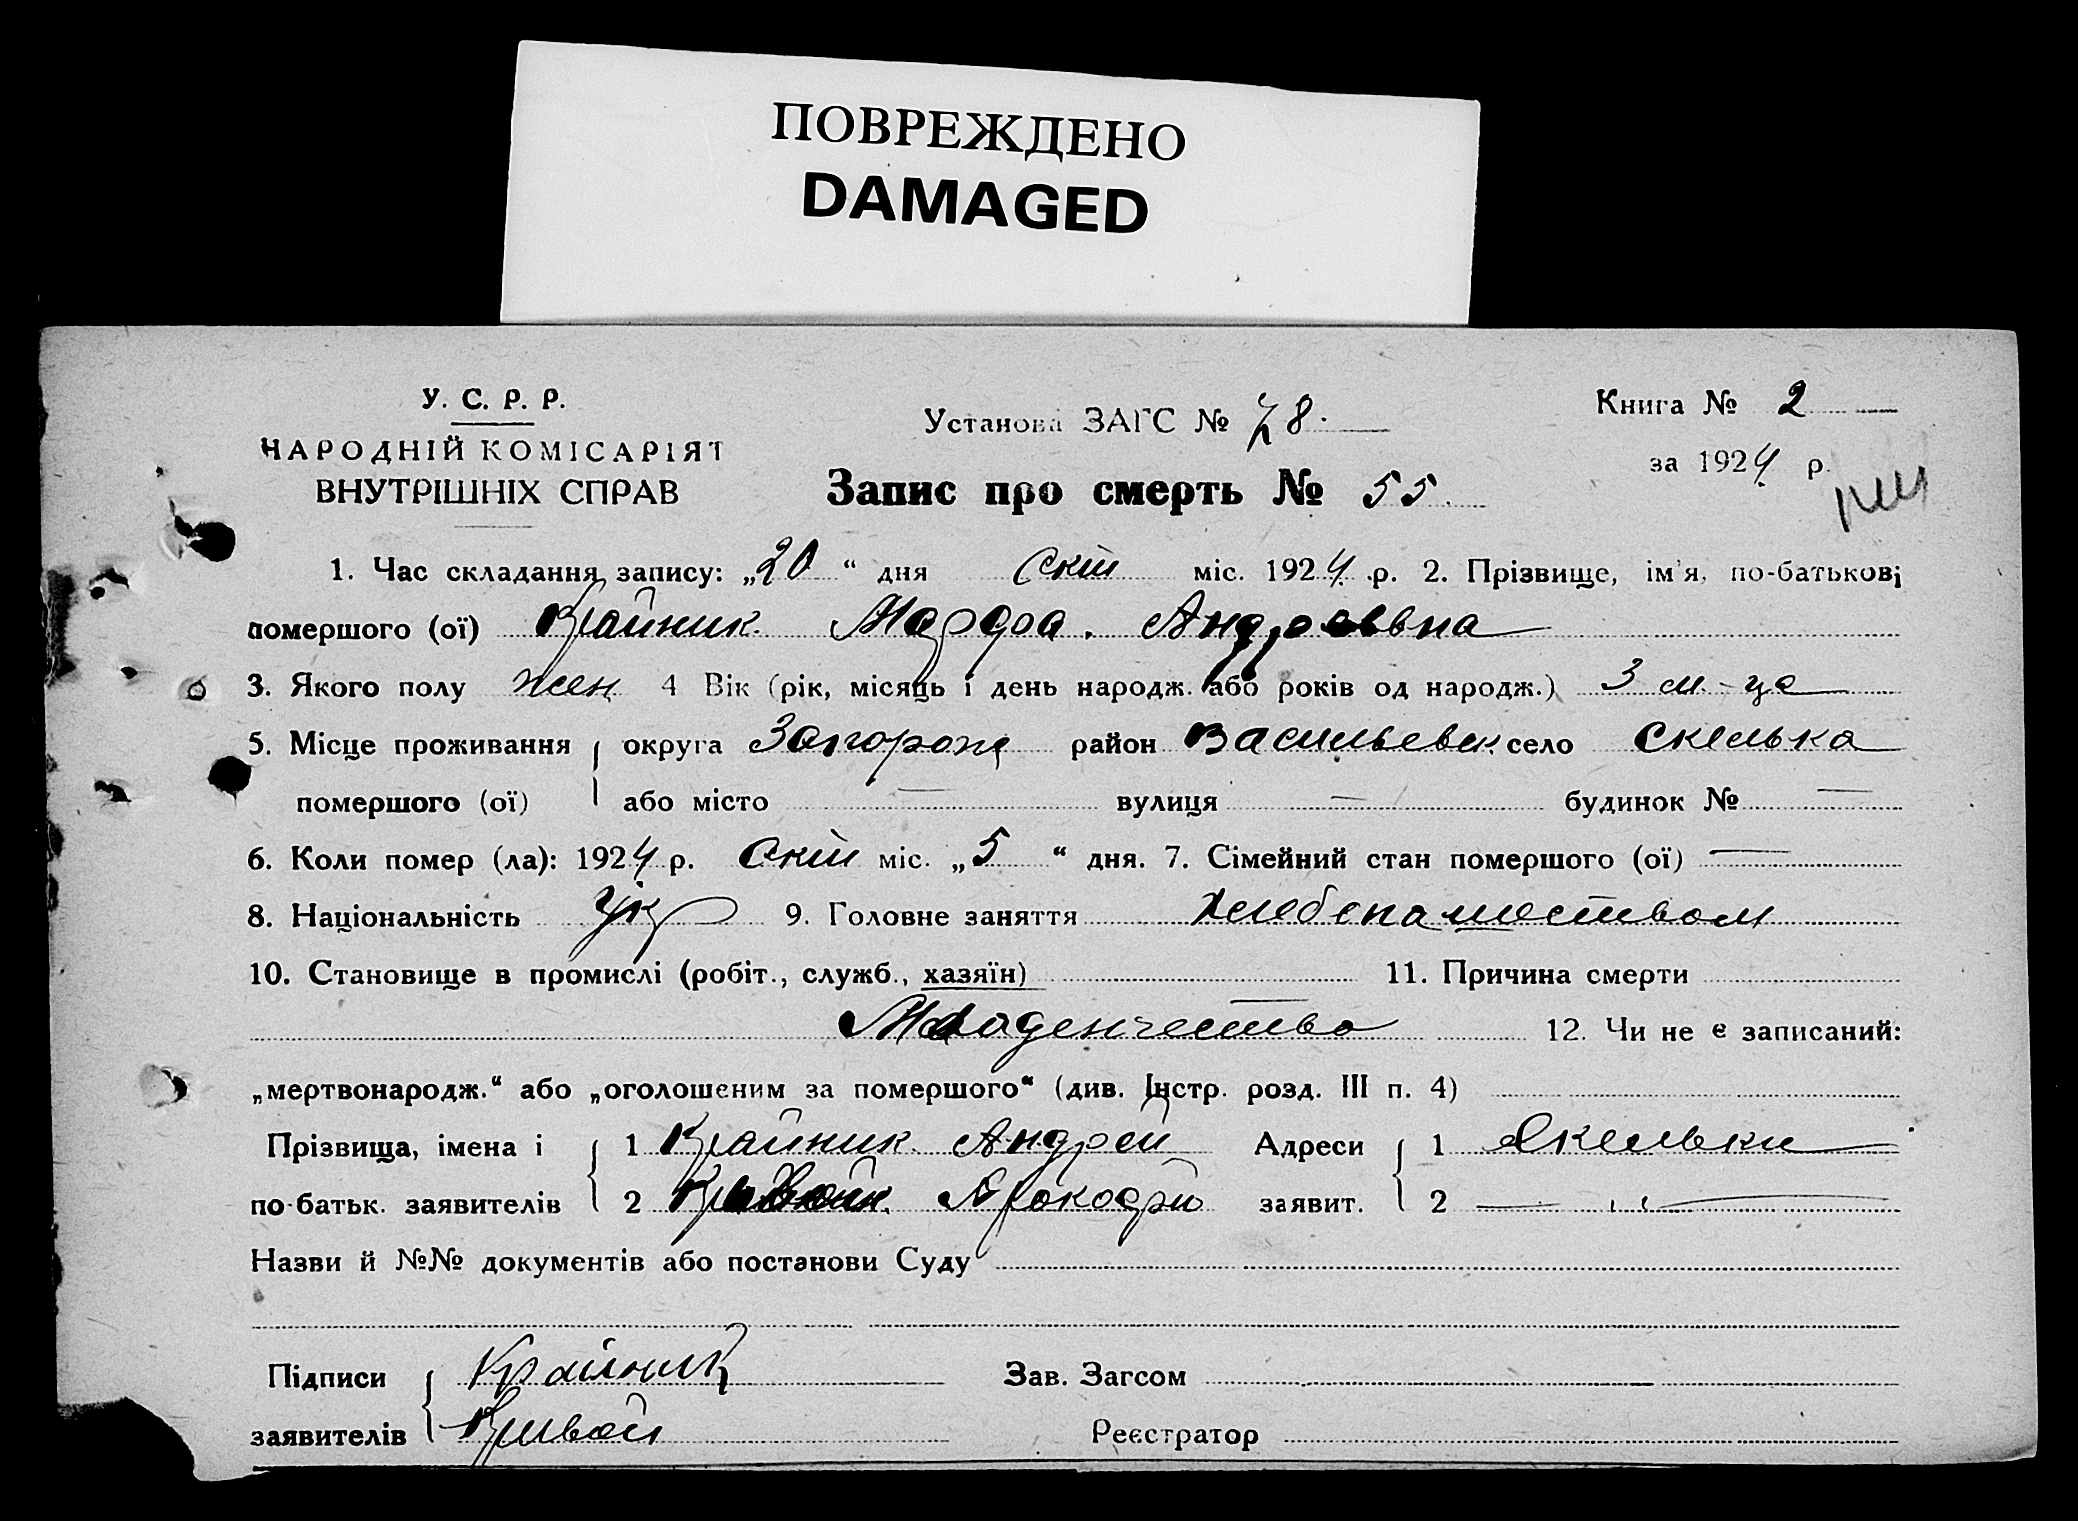 ПОВРЕЖДЕНО
DAMAGED
У. С. Р. Р.
НАРОДНІЙ КОМІСАРІЯТ
ВНУТРІШНІХ СПРАВ
Установа ЗАГС № 78.
Запис про смерть № 55.
Книга № 2
за 1924 р.
1. Час складання запису: „20“ дня Окт міс. 1924 р. 2. Прізвище, ім'я, по-батькові
помершого (ої) Крайник Марфа. Андреевна
3. Якого полу жен 4 Вік (рік, місяць і день народж. або років од народж.) 3 м-ца
5. Місце проживання округа Запорож район Васильевск село Скелька
помершого (ої) або місто — вулиця — будинок № —
6. Коли помер (ла): 1924 р. Окт міс. „5“ дня. 7. Сімейний стан помершого (ої) —
8. Національність Ук 9. Головне заняття хлебопашеством
10. Становище в промислі (робіт., служб., хазяїн) 11. Причина смерти
Младенчество 12. Чи не є записаний:
„мертвонародж.“ або „оголошеним за помершого“ (див. Інстр. розд. III п. 4)
Прізвища, імена і 1 Крайник Андрей Адреси 1 Скельки
по-батьк. заявителів 2 заявит. 2 — „ —
Назви й №№ документів або постанови Суду
Підписи Крайник Зав. Загсом
заявителів Кривой Реєстратор